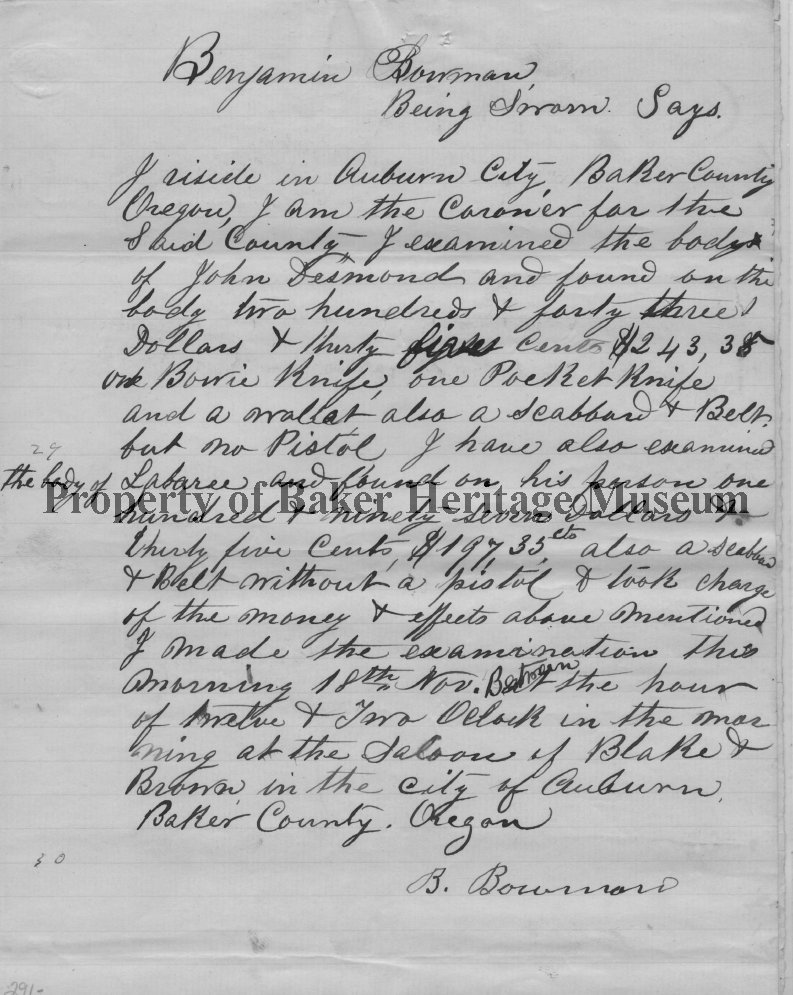 Benjamin Bowman,
Being Sworn. Says.
I riside in Auburn City, Baker County
Oregon, I am the Coroner for the
Said County I examined the body
of John Desmond and found on the
body two hundreds & forty three
Dollars & thirty cents $243,35
one Bowie Knife, one Pocket Knife
and a wallat also a Scabbard & Belt.
but no Pistol I have also examined
29
the body of Labaree and found on his person one
Property of Baker Heritage Museum
hundred & ninety seven Dollars &
thirty five cents, $197,35,cts also a scabbard
& Belt without a pistol I took charge
of the money & effects above mentioned
I made the examination this
morning 18th Nov. Between the hour
of twelve & Two Oclock in the mor
ning at the Saloon of Blake &
Brown in the city of Auburn
Baker County. Oregon
30
B. Bowman
291-